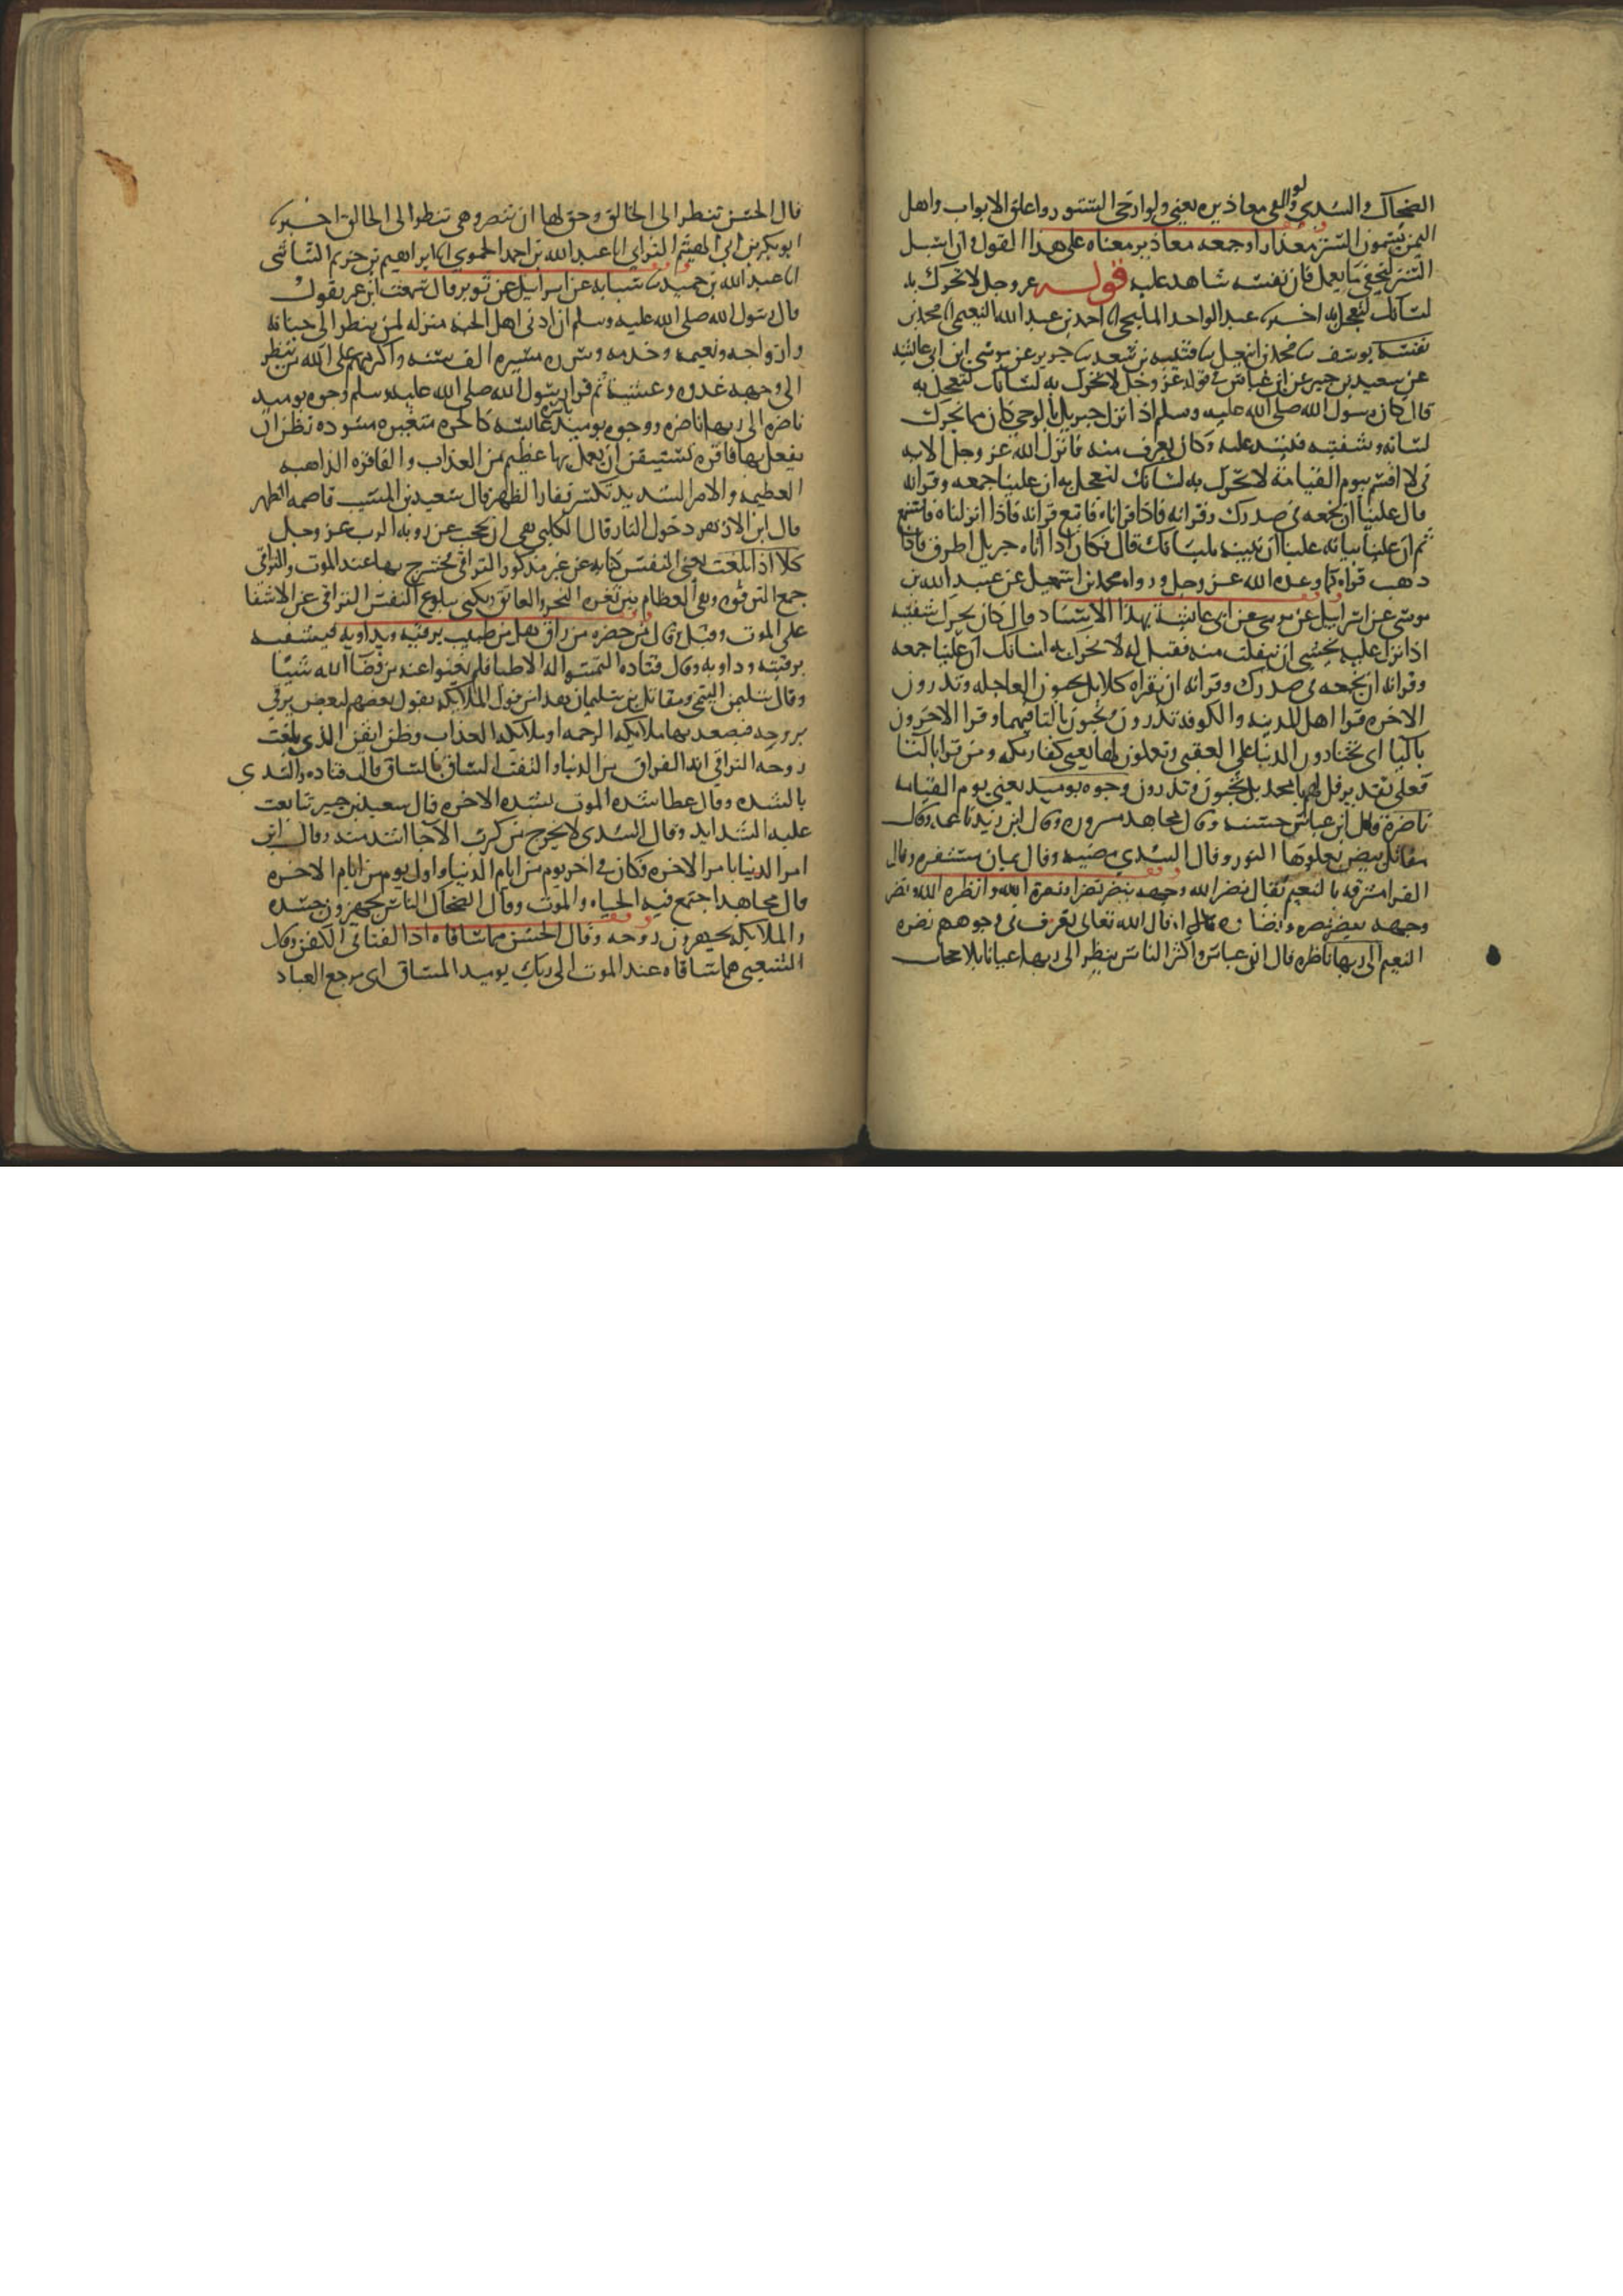 الضحاك والسدي ولو القى معاذيره يعني ولو ارخى الستور واغلق الابواب واهل
اليمن يسمون الستر معذارا وجمعه معاذير ومعناه على هذا القول وان اسبل
الستر ليخفي ما يعمل فان نفسه شاهد عليه قوله عز وجل لا تحرك به
لسانك لتعجل به اخبرنا عبد الواحد المليحي انا احمد بن عبد الله النعيمي انا محمد بن
يوسف ثنا محمد بن اسمعيل ثنا قتيبه بن سعيد ثنا جرير عن موسى ابن ابي عائشه
عن سعيد بن جبير عن ابن عباس في قوله عز وجل لا تحرك به لسانك لتعجل به
قال كان رسول الله صلى الله عليه وسلم اذا نزل جبريل بالوحي كان مما يحرك
لسانه وشفتيه فيشتد عليه وكان يعرف منه فانزل الله عز وجل الايه
في لا اقسم بيوم القيامة لا تحرك به لسانك لتعجل به ان علينا جمعه وقرانه
قال علينا ان نجمعه في صدرك وقرانه فاذا قراناه فاتبع قرانه فاذا انزلناه فاستمع
ثم ان علينا بيانه علينا ان نبينه بلسانك قال فكان اذا اتاه جبريل اطرق فاذا
ذهب قراه كما وعده الله عز وجل ورواه محمد بن اسمعيل عن عبيد الله بن
موسى عن اسرائيل عن موسى عن ابي عائشة بهذا الاسناد وقال كان يحرك شفتيه
اذا نزل عليه يخشى ان ينفلت منه فقيل له لا تحرك به لسانك ان علينا جمعه
وقرانه ان نجمعه في صدرك وقرانه ان تقراه كلا بل تحبون العاجله وتذرون
الاخره قرا اهل المدينه والكوفه تذرون وتحبون بالتا فيهما وقرا الاخرون
باليا اي يختارون الدنيا على العقبى ويعملون لها يعني كفار مكه ومن قرا بالتا
فعلى تقدير قل لهم يا محمد بل تحبون وتذرون وجوه يوميد يعني يوم القيامه
ناضرة قال ابن عباس حسنه وقال مجاهد مسروره وقال ابن زيد ناعمه وقال
مقاتل بيض يعلوها النور وقال السدي مضيه وقال يمان مسفره وقال
الفرا مشرقه بالنعيم يقال نضر الله وجهه ينضر نضرا ونضرة الله وانضره الله ونضر
وجهه ينضر نضره ونضاره قال الله تعالى تعرف في وجوههم نضره
النعيم الى ربها ناظره قال ابن عباس واكثر الناس ينظر الى ربها عيانا بلا حجاب
قال الحسن تنظر الى الخالق وحق لها ان تنضر وهي تنظر الى الخالق اخبرنا
ابو بكر بن ابي الهيثم الترابي انا عبد الله بن احمد الحموي انا ابراهيم بن خزيم الشاشي
انا عبد الله بن حميد ثنا شبابه عن اسرائيل عن ثوير قال سمعت ابن عمر يقول
قال رسول الله صلى الله عليه وسلم ان ادنى اهل الجنه منزله لمن ينظر الى جنانه
وازواجه ونعيمه وخدمه وسرره مسيره الف سنه واكرمهم على الله من ينظر
الى وجهه غدوه وعشية ثم قرا رسول الله صلى الله عليه وسلم وجوه يوميد
ناضره الى ربها ناضره ووجوه يوميد باسره عابسه كالحه متغيره مسوده تظن ان
يفعل بها فاقره تستيقن ان يعمل بها عظيم من العذاب والفاقره الداهيه
العظيمه والامر الشديد يكسر فقار الظهر قال سعيد بن المسيب قاصمه الظهر
قال ابن زيد هو دخول النار قال الكلبي هي ان تحجب عن رويه الرب عز وجل
كلا اذا بلغت يعني النفس كنايه عن غير مذكور التراقي فحشرج بها عند الموت والتراقي
جمع الترقوه وهي العظام بين ثغره النحر والعاتق ويكنى ببلوغ النفس التراقي عن الاشفا
على الموت وقيل وقال من حضره من راق هل من طبيب يرقيه ويداويه فيشفيه
برقيته ودوايه وقال قتاده التمسوا له الاطبا فلم يغنوا عنه من قضا الله شيا
وقال سليمن التيمي ومقاتل بن سليمان هذا من قول الملايكه يقول بعضهم لبعض من يرقى
بروحه فيصعد بها ملايكه الرحمه او ملايكه العذاب وظن ايقن الذي بلغت
روحه التراقي انه الفراق من الدنيا والتفت الساق بالساق قال قتاده والسدي
بالشده وقال عطا شده الموت بشده الاخره قال سعيد بن جبير تتابعت
عليه الشدايد وقال السدي لا يخرج من كرب الا جا اشد منه وقال ابن
امر الدنيا بامر الاخره فكان في اخر يوم من ايام الدنيا واول يوم من ايام الاخره
قال مجاهد اجتمع فيه الحياه والموت وقال الضحاك الناس يجهزون جسده
والملايكه يجهزون روحه وقال الحسن هما ساقاه اذا التفتا في الكفن وقال
الشعبي هما ساقاه عند الموت الى ربك يوميد المساق اي مرجع العباد